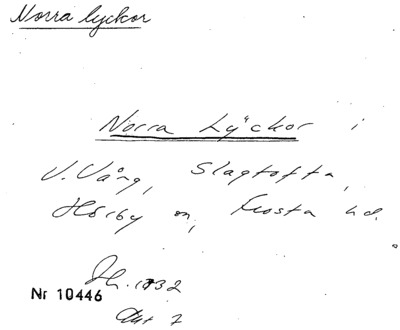 Norra lyckor
Norra Lyckor i
V. Vång, Slagtofta,
Hörby sn, Frosta hd.
1832
Nr 10446
Akt 7